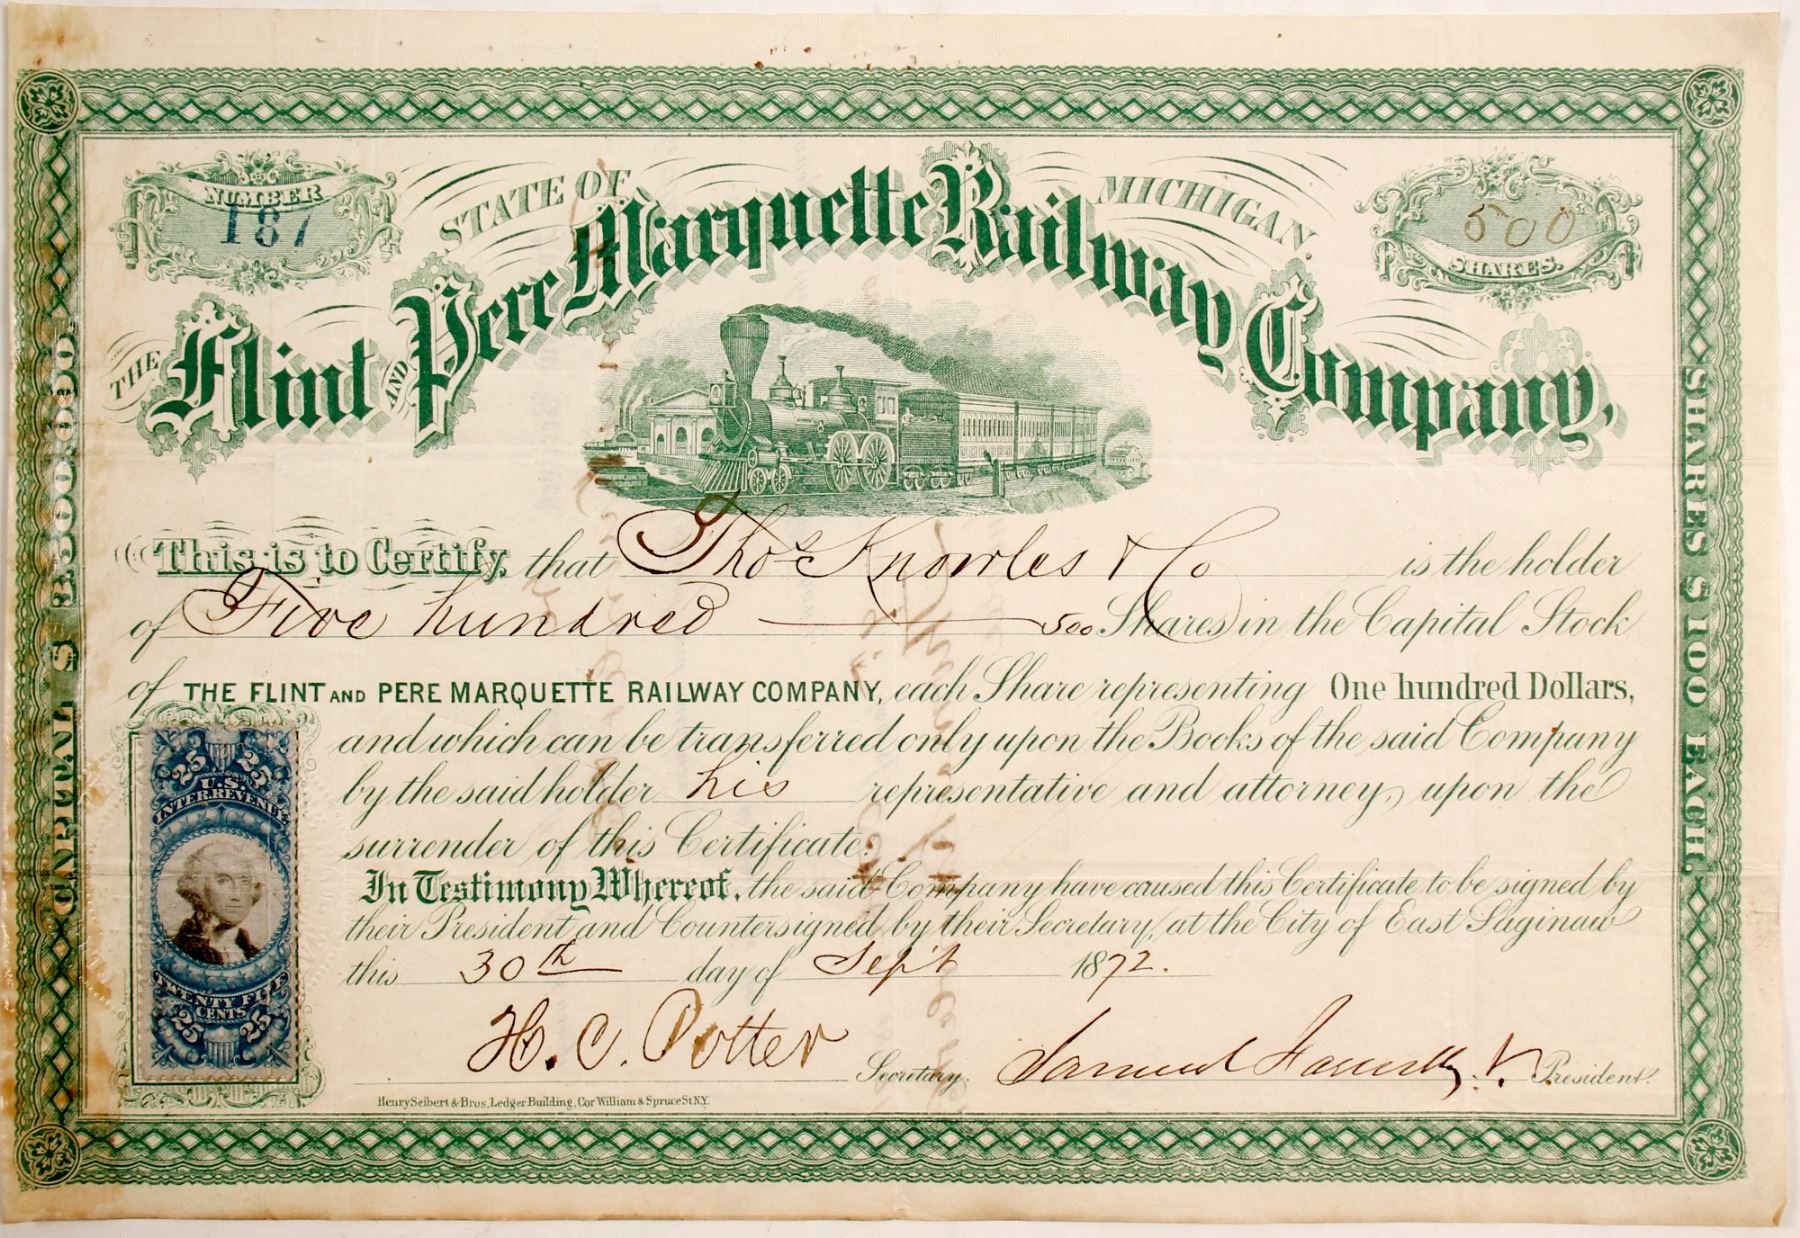 NUMBER
187
STATE OF MICHIGAN.
500
SHARES.
THE Flint AND Pere Marquette Railway Company,
This is to Certify, that Thos Knowles & Co is the holder
of Five hundred 500 Shares in the Capital Stock
of THE FLINT AND PERE MARQUETTE RAILWAY COMPANY, each Share representing One hundred Dollars,
and which can be transferred only upon the Books of the said Company
by the said holder his representative and attorney, upon the
surrender of this Certificate.
In Testimony Whereof, the said Company have caused this Certificate to be signed by
their President and Countersigned by their Secretary, at the City of East Saginaw
this 30th day of Sept 1872.
H. C. Potter Secretary. Samuel V. President.
Henry Seibert & Bros, Ledger Building, Cor William & Spruce St N.Y.
25 25
U.S.
INTER. REVENUE
TWENTY FIVE
CENTS
25 25
CAPITAL $
SHARES $100 EACH.